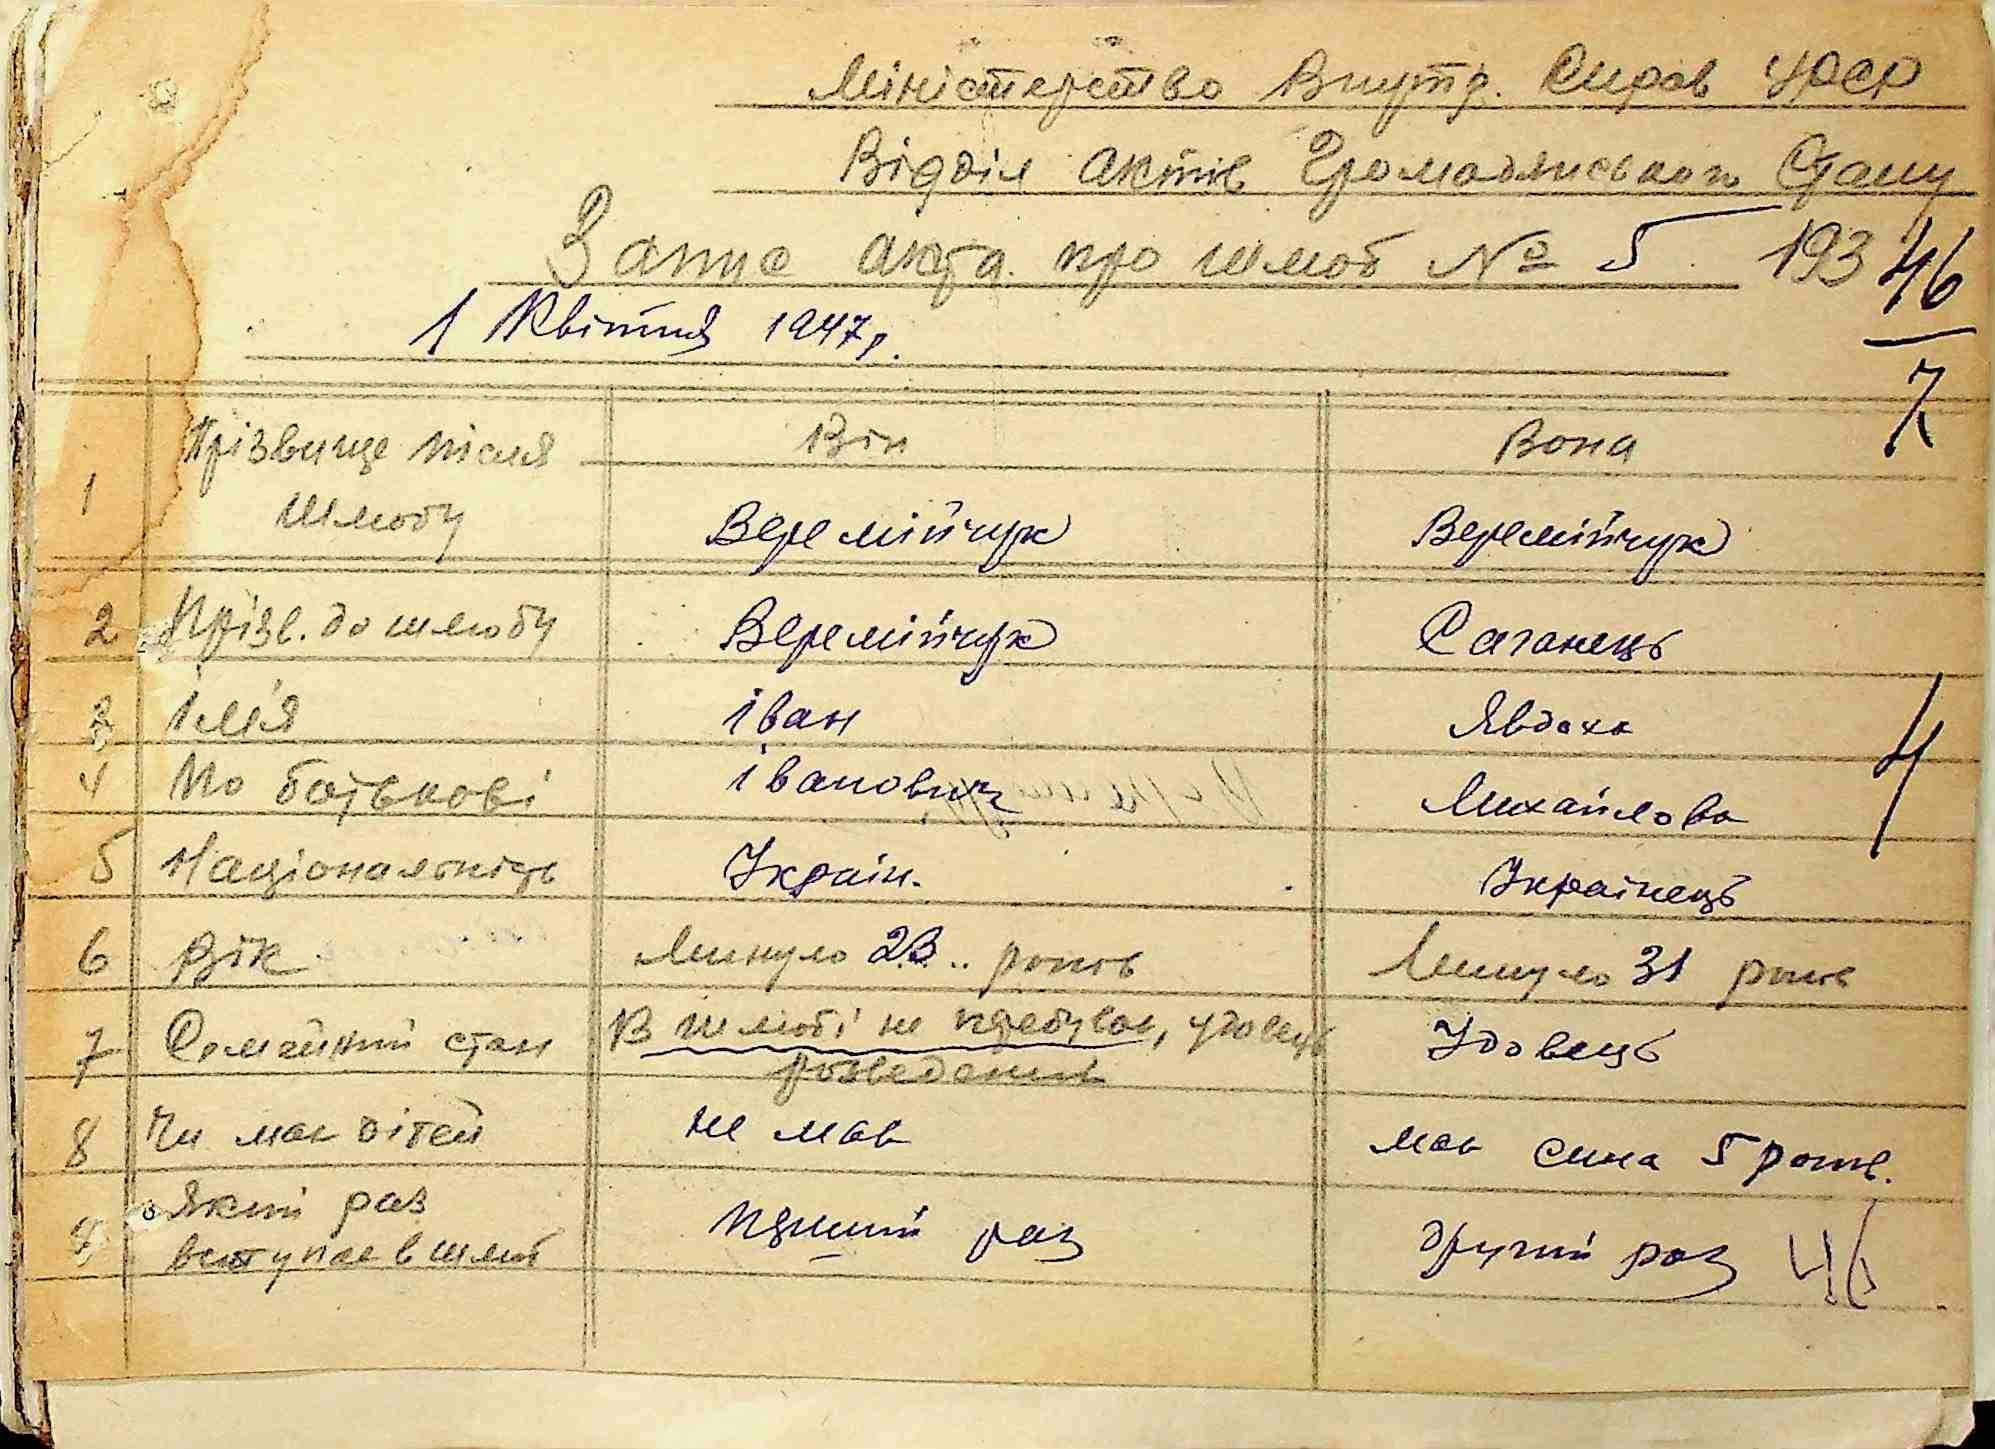 Міністерство Внутр. Справ УРСР
Відділ Актів Громадянського Стану
Запис акта про шлюб № 5 193
46
7
1 Квітня 1947 р.
1 Прізвище після шлюбу
Він Вона
Веремійчук Веремійчук
2 Прізв. до шлюбу Веремійчук Саганець
3 Ім'я Іван Явдоха
4 По батькові Іванович Михайлова
4
5 Національність Україн. Українець
6 Вік Минуло 23 років Минуло 31 років
7 Семейний стан В шлюбі не перебував, удовець Удовець
розведений
8 Чи має дітей не мав має сина 5 років.
9 Який раз
вступає в шлюб перший раз другий раз 46